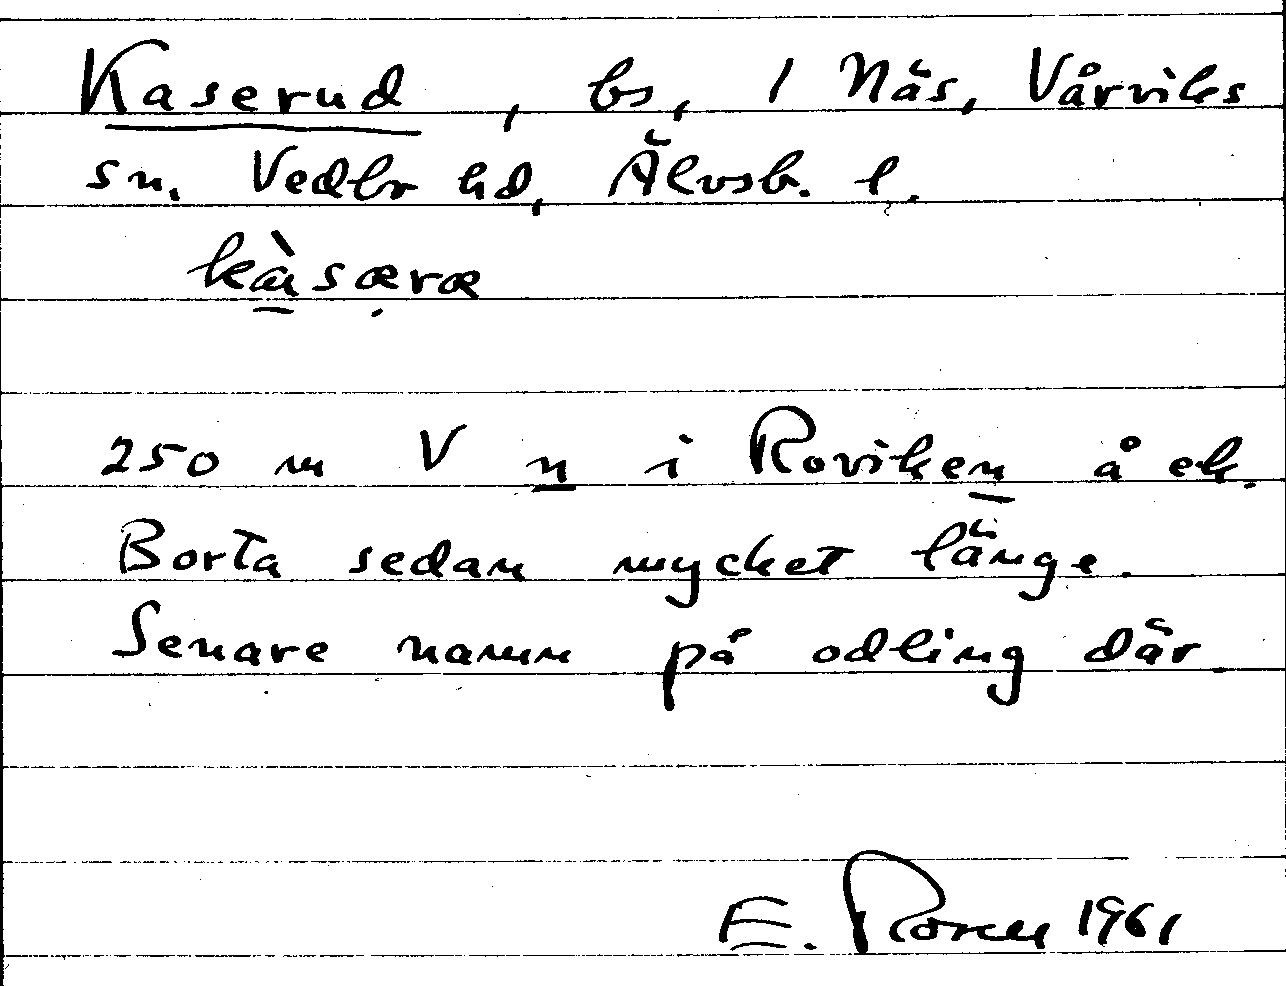 Kaserud, bs, 1 Näs, Vårviks
sn. Vedbr hd, Älvsb. l.
kàsæræ
250 m V n i Roviken å ek.
Borta sedan mycket länge.
Senare namn på odling där.
E. Rosen 1961